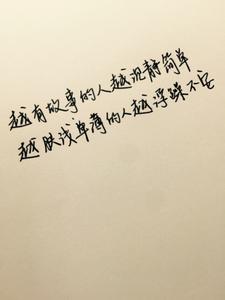 越有故事的人越沉静简单
越肤浅单薄的人越浮躁不安